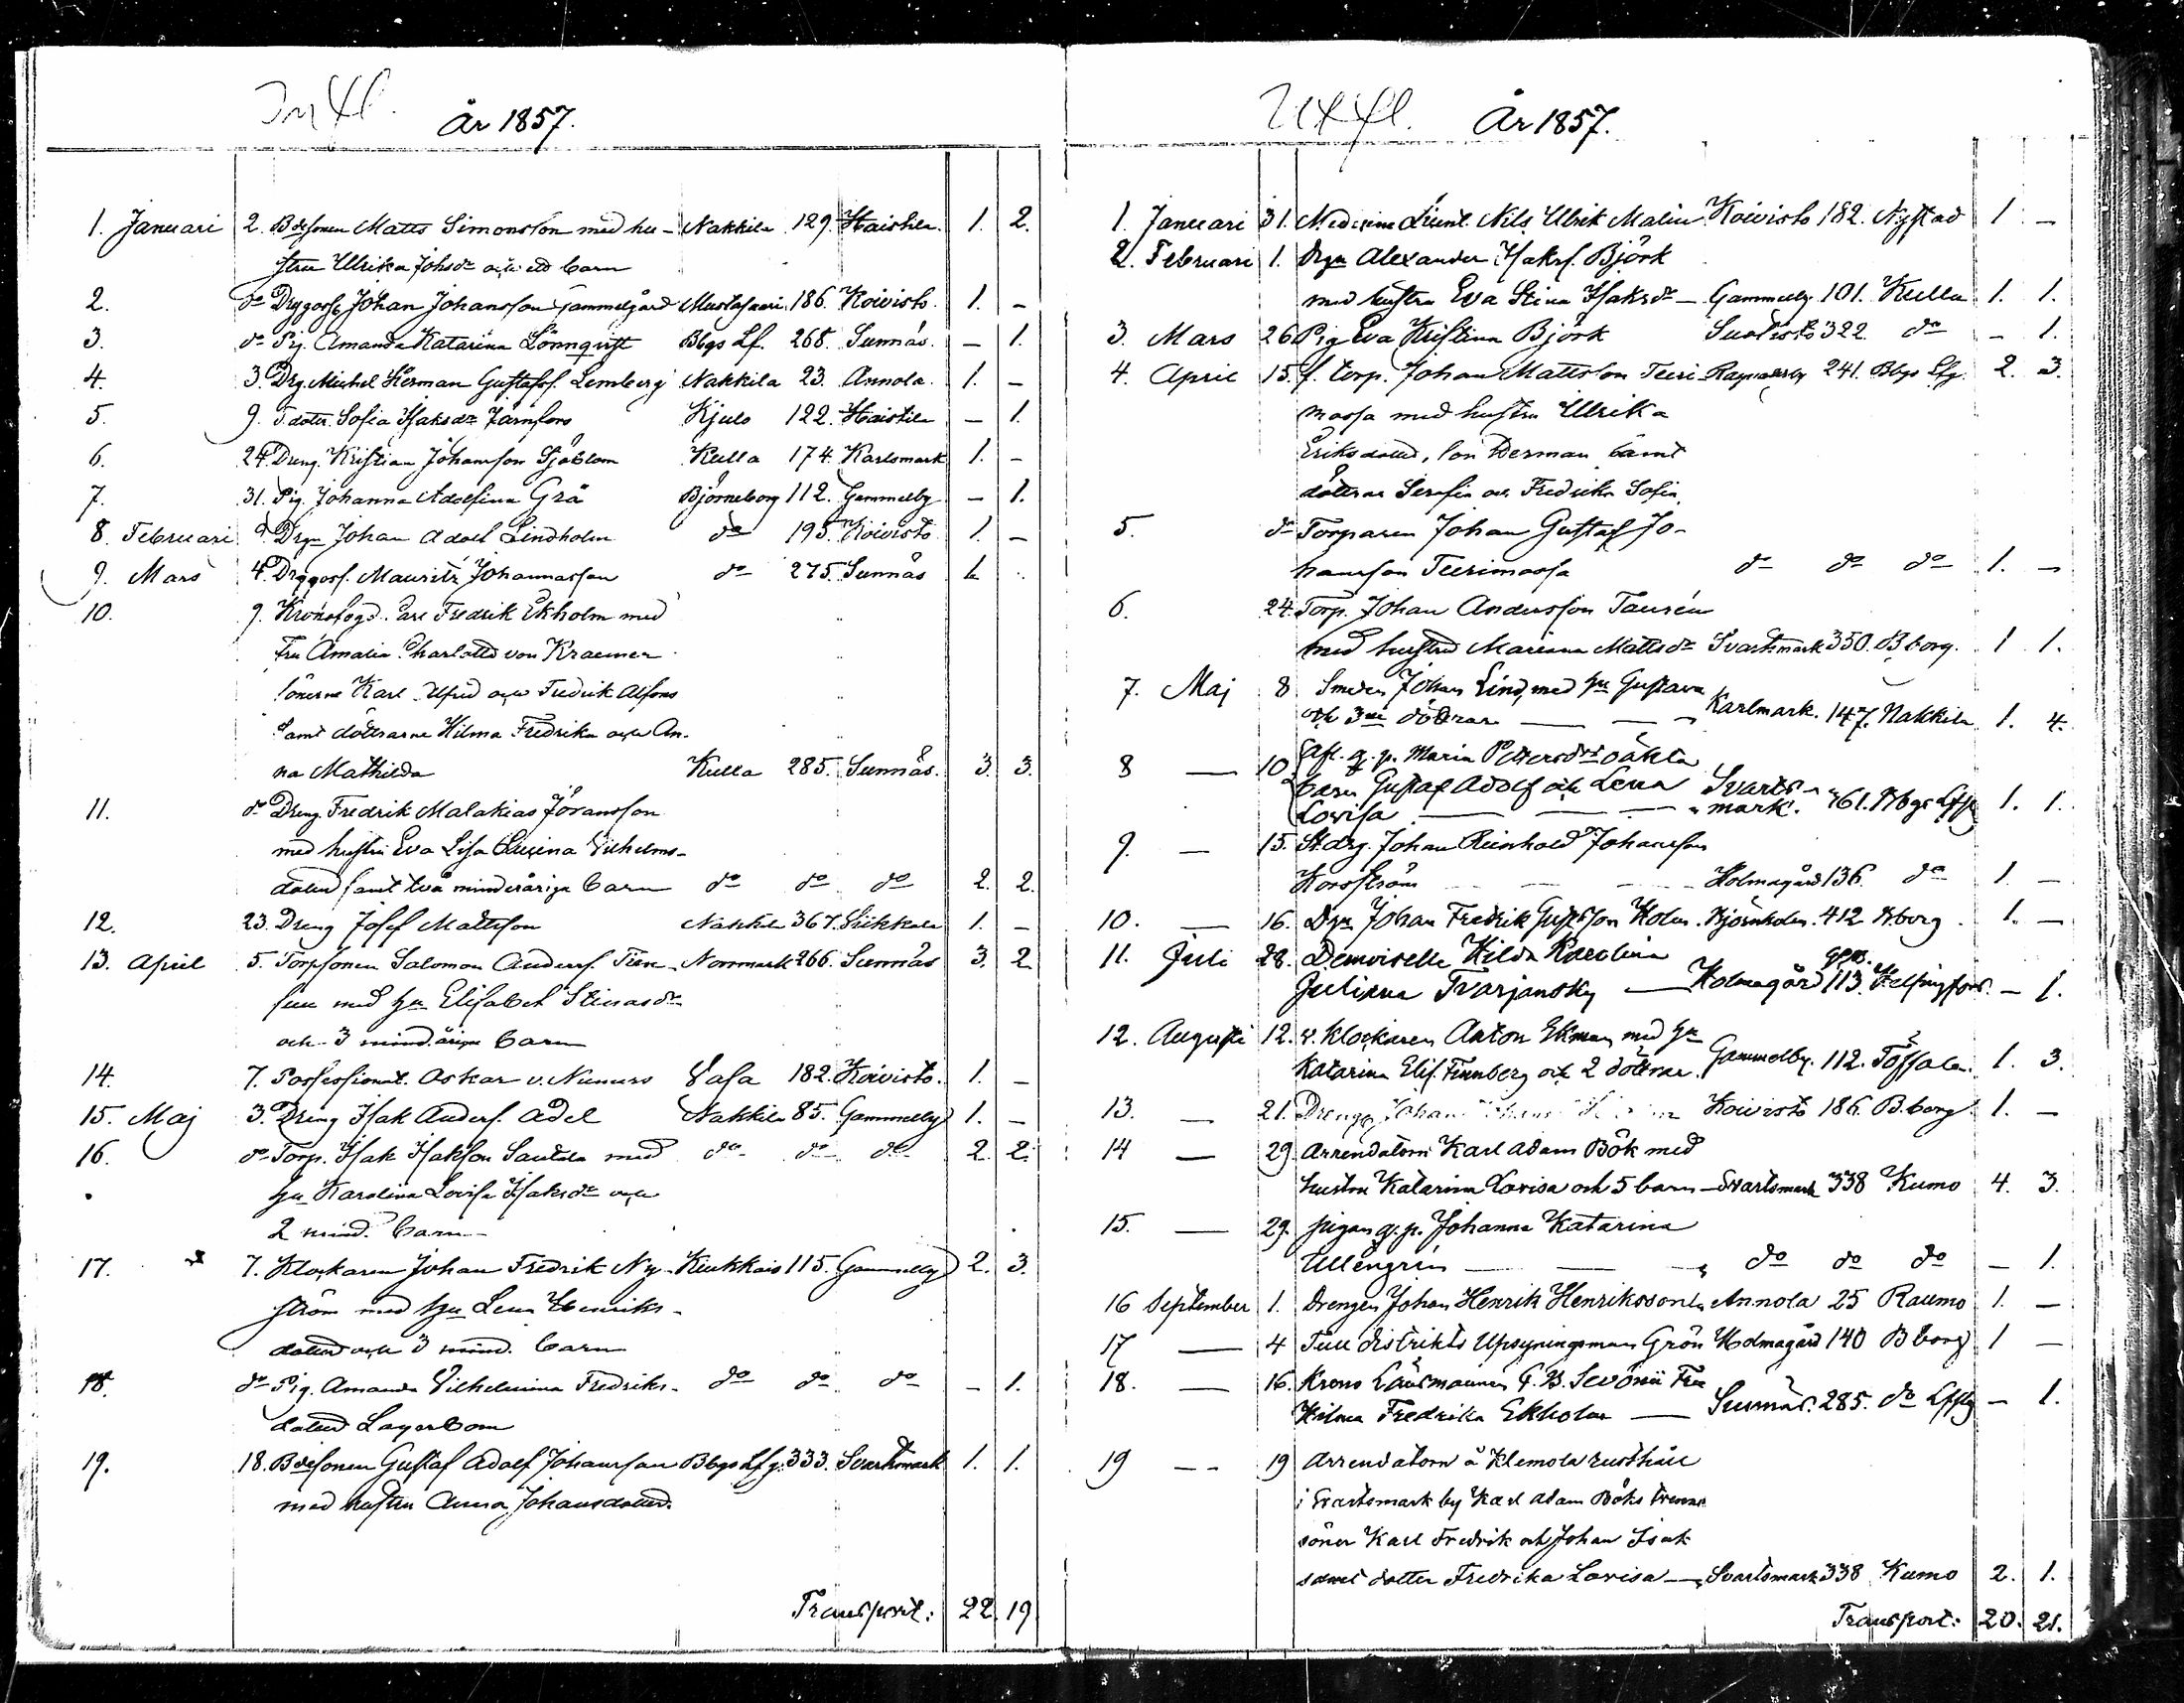 Infl. År 1857.
1. Januari 2. Bdesonen Matts Simonsson med hu- Nakkila 129. Haistila. 1. 2.
stru Ulrika Johsdr och ett barn
2. do Drggoss Johan Johansson Gammelgård Mustasaari 186. Koivisto. 1. -
3. do Pig. Amanda Katarina Lönnqvist Bbgs Lf. 268. Sunnäs. - 1.
4. 3. Drg. Michel Herman Gustafsf. Lemberg Nakkila 23. Annola. 1. -
5. 9. T. dotter Sofia Isaksdr Järnfors Kjulo 122. Haistila - 1.
6. 24. Dreng. Kristian Johansson Sjöblom Kulla 174. Karlsmark 1. -
7. 31. Pig. Johanna Adolfina Grå Björneborg 112. Gammelby - 1.
8. Februari 9 Drgn Johan Adolf Lindholm do 195. Koivisto 1. -
9. Mars 4. Drggoss. Mauritz Johannasson do 275. Sunnäs 1.
10. 9. Kronofogd. Fredrik Ekholm med
Fru Amalia Charlotta von Kraemer
sönerne Karl Alfred och Fredrik Alfons
samt döttrarne Hilma Fredrika och An-
na Mathilda Kulla 285. Sunnäs. 3. 3.
11. do Dreng Fredrik Malakias Göransson
med hustru Eva Lisa Vilhelms-
dotter samt två minderåriga barn do do do 2. 2.
12. 23. Dreng Josef Mattsson Nakkila 367. 1. -
13. April 5. Torpsonen Salomon Andersf. Norrmark 266. Sunnäs 3. 2
med hu Elisabet Stinasdr
och 3 mind.åriga barn
14. 7. Possessionat. Oskar v. Numers Vasa 182. Koivisto. 1. -
15. Maj 3. Dreng Isak Andersf. Adel Nakkila 85. Gammelby 1. -
16. do Torp. Isak Isaksson Santala med do do do 2. 2.
hu Karolina Lovisa Isaksdr och
2 mind. barn
17. 7. Klockaren Johan Fredrik Ny- Kiukkais 115. Gammelby 2. 3.
ström med hu Lena Henriks-
dotter och 3 mind. barn
18. do Pig. Amanda Vilhelmina Fredriks- do do do - 1.
dotter Lagerbom
19. 18. Bdesonen Gustaf Adolf Johansson Bbgs Lfg. 333. Svartsmark 1. 1.
med hustru Anna Johansdotter.
Transport: 22. 19
Utfl. År 1857.
1. Januari 31. Medicine Licent. Nils Ulrik Malin Koivisto 182. Nystad 1. -
2. Februari 1. Drgn Alexander Isaksf. Björk
med hustru Eva Stina Isaksdr - Gammelby 101. Kulla 1. 1.
3. Mars 26 Pig Eva Kristina Björk 322. do - 1.
4. April 15. f. torp. Johan Mattsson Teeri- Ragnarsby 241. Bbgs Lfg. 2. 3.
mossa med hustru Ulrika
Eriksdotter, son Herman samt
döttrar Serafia och Fredrika Sofia
5. do Torparen Johan Gustaf Jo-
hansson Teerimossa do do do 1. -
6. 24. Torp. Johan Andersson Taurén
med hustru Mariana Mattsdr Svartsmark 350. B.borg. 1 1.
7. Maj 8 Smeden Johan Lind, med hu Gustava
och 3ne döttrar Karlmark. 147. Nakkila 1. 4.
8 - 10 Afl. q. p. Maria Petersdrs oäkta
barn Gustaf Adolf och Lena Svarts-
Lovisa mark. 361. Bbgs Lfg 1. 1.
9. - 15. St.drg. Johan Reinhold Johansson
Korsström Holmagård 136. do 1. -
10. - 16. Drgn Johan Fredrik Gustfsson Holm. Björnholm. 412 Bborg. 1. -
11. Juli 28. Demoiselle Hilda Karolina
Juliana Tvarjansky Holmagård 113. Helsingfors. - 1.
12. Augusti 12. v. Klockaren Anton Ekman med hu
Katarina Elis. Finnberg och 2 döttrar. Gammelby. 112. 1. 3.
13. - 21. Drengen Johan Koivisto 186. B.borg. 1. -
14 - 29 Arrendatorn Karl Adam Bök med
hustru Katarina Lovisa och 5 barn - Svartsmark 338 Kumo 4. 3.
15. - 29. pigan q. p. Johanna Katarina
Ullengrén do do do - 1.
16 September 1. Drengen Johan Henrik Henriksson Annola 25 Raumo 1. -
17 - 4 Tull distrikts Uppsyningsman Grön Holmagård 140 B borg 1 -
18. - 16. Krono Länsmannen G. B. Sevónii Fru
Hilma Fredrika Ekholm Sunnäs. 285. do Lffg - 1.
19 - 19 Arrendatorn å Klemola rusthåll
i Svartsmark by Karl Adam Böks trenne
söner Karl Fredrik och Johan Isak
samt dotter Fredrika Lovisa Svartsmark 338 Kumo 2. 1.
Transport: 20. 21.